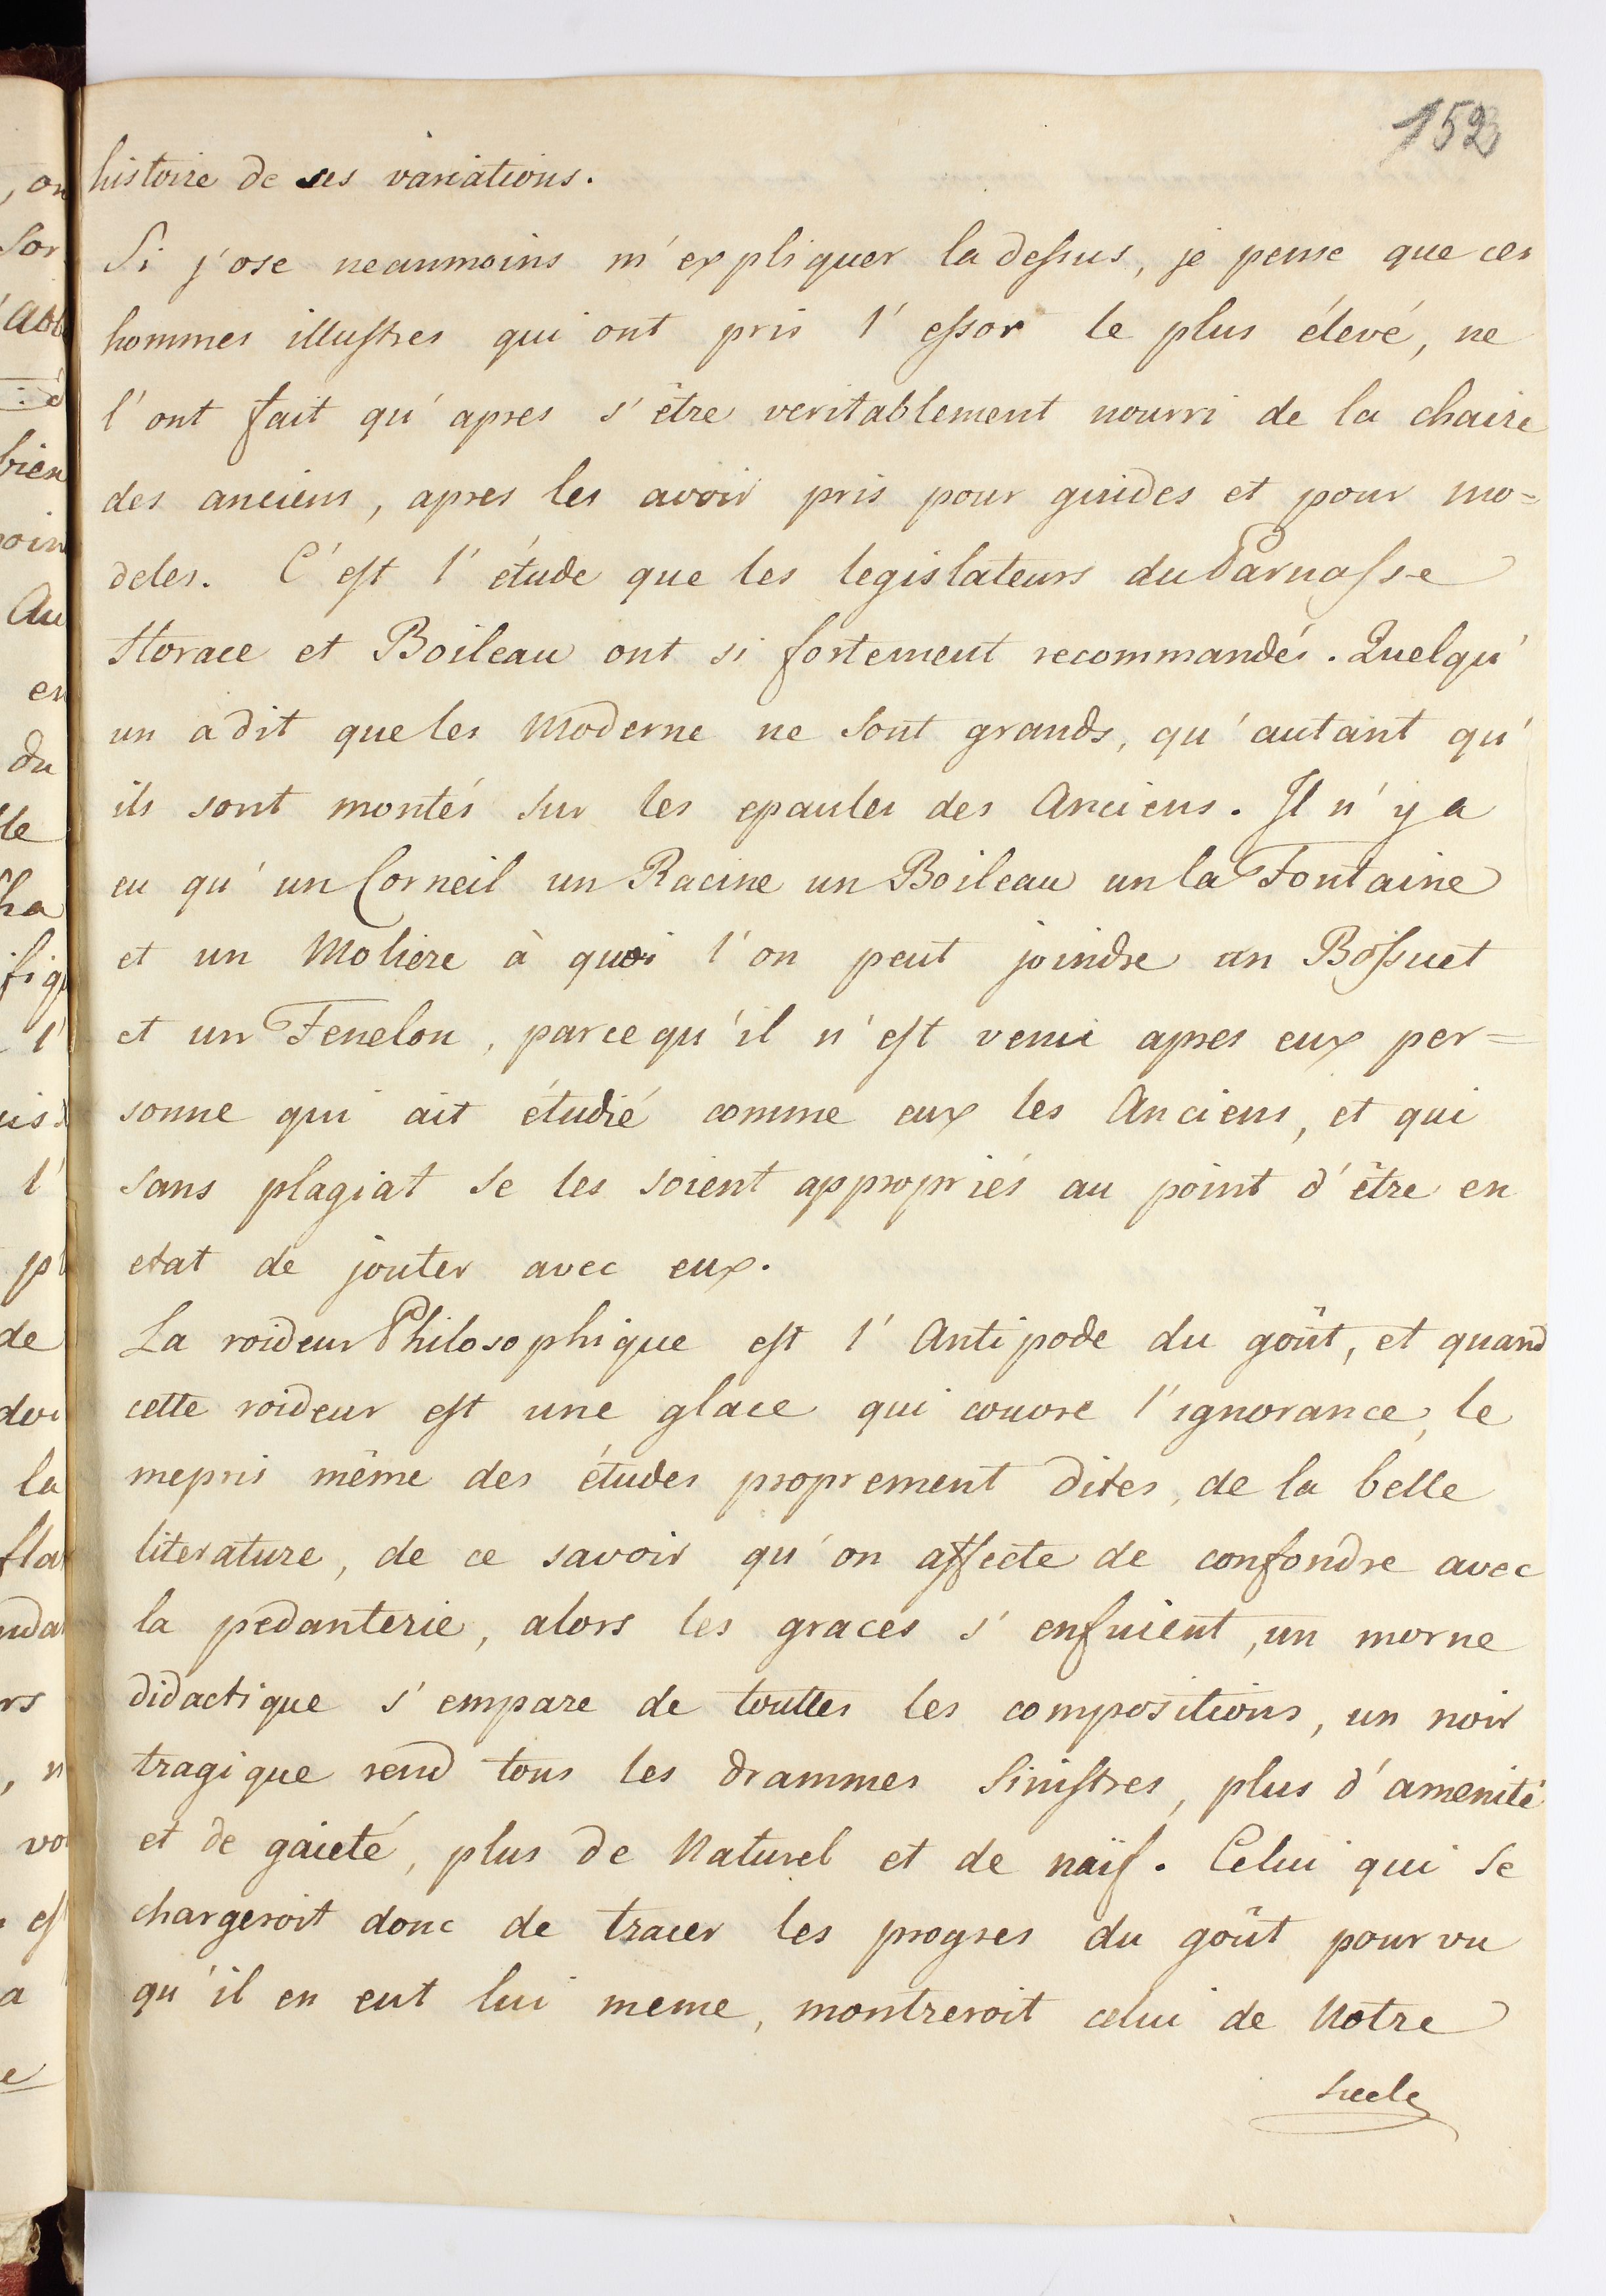 152
histoire de ses variations.
Si j'ose neanmoins m'expliquer la dessus, je pense que ces
hommes illustres qui ont pris l'essor le plus élevé, ne
l'ont fait qu'apres s'être veritablement nourri de la chaire
des anciens, apres les avoir pris pour guides et pour mo=
deles. C'est l'étude que les legislateurs du Parnasse
Horace et Boileau ont si fortement recommandés. Quelqu'
un a dit que les Moderne ne sont grands, qu'autant qu'
ils sont montés sur les epaules des Anciens. Il n'y a
eu qu'un Corneil un Racine un Boileau un la Fontaine
et un Moliere à quoi l'on peut joindre un Bossuet
et un Fenelon, parcequ'il n'est venu apres eux per=
sonne qui ait étudié comme eux les Anciens, et qui
sans plagiat se les soient appropriés au point d'être en
etat de jouter avec eux.
La roideur Philosophique est l'Antipode du goût, et quand
cette roideur est une glace qui couvre l'ignorance, le
mepris même des études proprement dites, de la belle
literature, de ce savoir qu'on affecte de confondre avec
la pedanterie, alors les graces s'enfuient, un morne
didactique s'empare de touttes les compositions, un noir
tragique rend tous les drammes sinistres, plus d'amenité
et de gaieté, plus de Naturel et de naïf. Celui qui se
chargeroit donc de tracer les progres du goût pourvu
qu'il en eut lui meme, montreroit celui de Notre
siecle